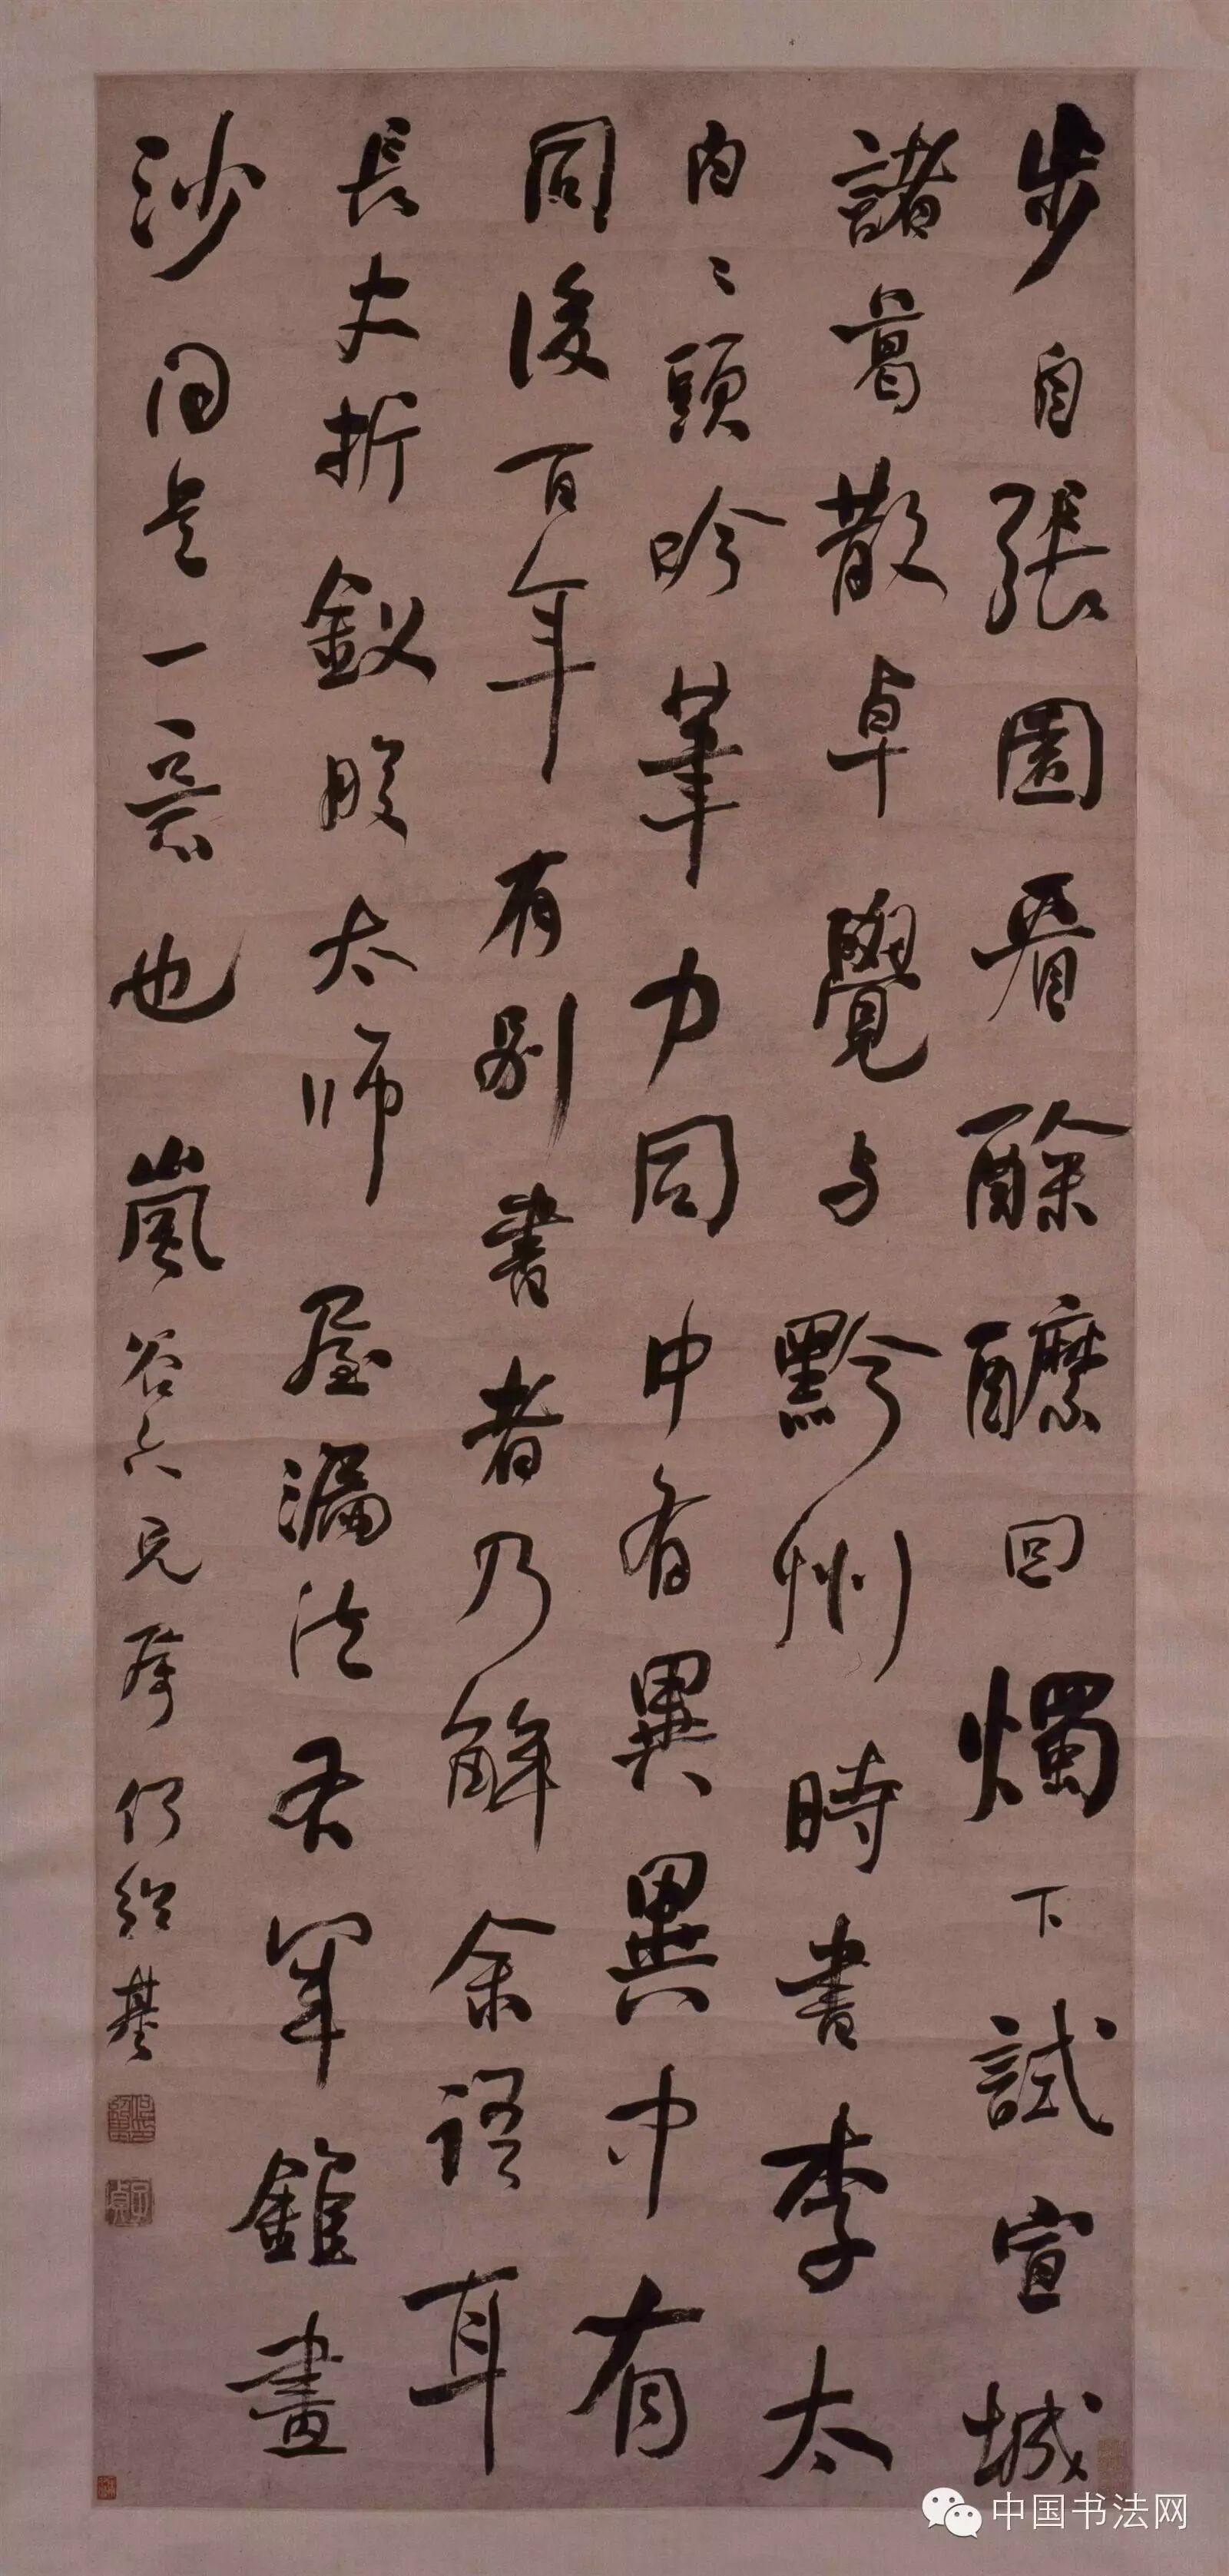 步自張園看酴醿回燭下試宣城
諸葛散卓覺与黔州時書李太
白〻頭吟筆力同中有異異中有
同後百年有別書者乃解余語耳
長史折釵股太師屋漏法右軍錐畫
沙同是一意也 嵐谷六兄屬 何紹基
中国书法网